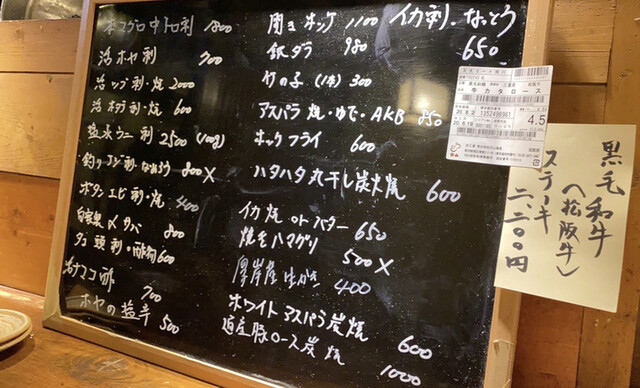 本マグロ中トロ刺 1800
活ホヤ刺 700
活ツブ刺・焼 2000
活ホタテ刺・焼 600
塩水ウニ刺 2500 (100g)
釣りアジ刺・なめろう 800 X
ボタンエビ刺・焼 400
自家製〆サバ 800
タコ頭刺・酢物 600
活ナマコ酢 700
ホヤの塩辛 500
開きホッケ 1100
銀ダラ 980
竹の子(1本) 300
アスパラ 焼・ゆで・AKB 850
ホッケフライ 600
ハタハタ丸干し炭火焼 600
イカ焼 or バター 650
焼ハマグリ 500 X
厚岸産生がき 400
ホワイトアスパラ炭焼 600
道産豚ロース炭焼 1000
イカ刺・なっとう
650
牛カタロース
4.5
黒毛和牛
(松阪牛)
ステーキ
二、二〇〇円